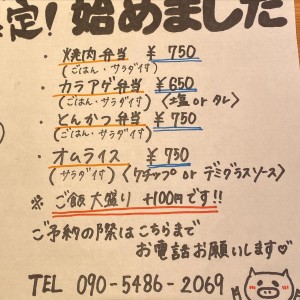 定! 始めました
・焼肉弁当 ￥750
(ごはん・サラダ付)
・カラアゲ弁当 ￥650
(ごはん・サラダ付) 〈塩 or タレ〉
・とんかつ弁当 ￥750
(ごはん・サラダ付)
・オムライス ￥750
(サラダ付) 〈ケチャップ or デミグラスソース〉
※ ご飯大盛り +100円です!!
ご予約の際はこちらまで
お電話お願いします♡
TEL 090-5486-2069